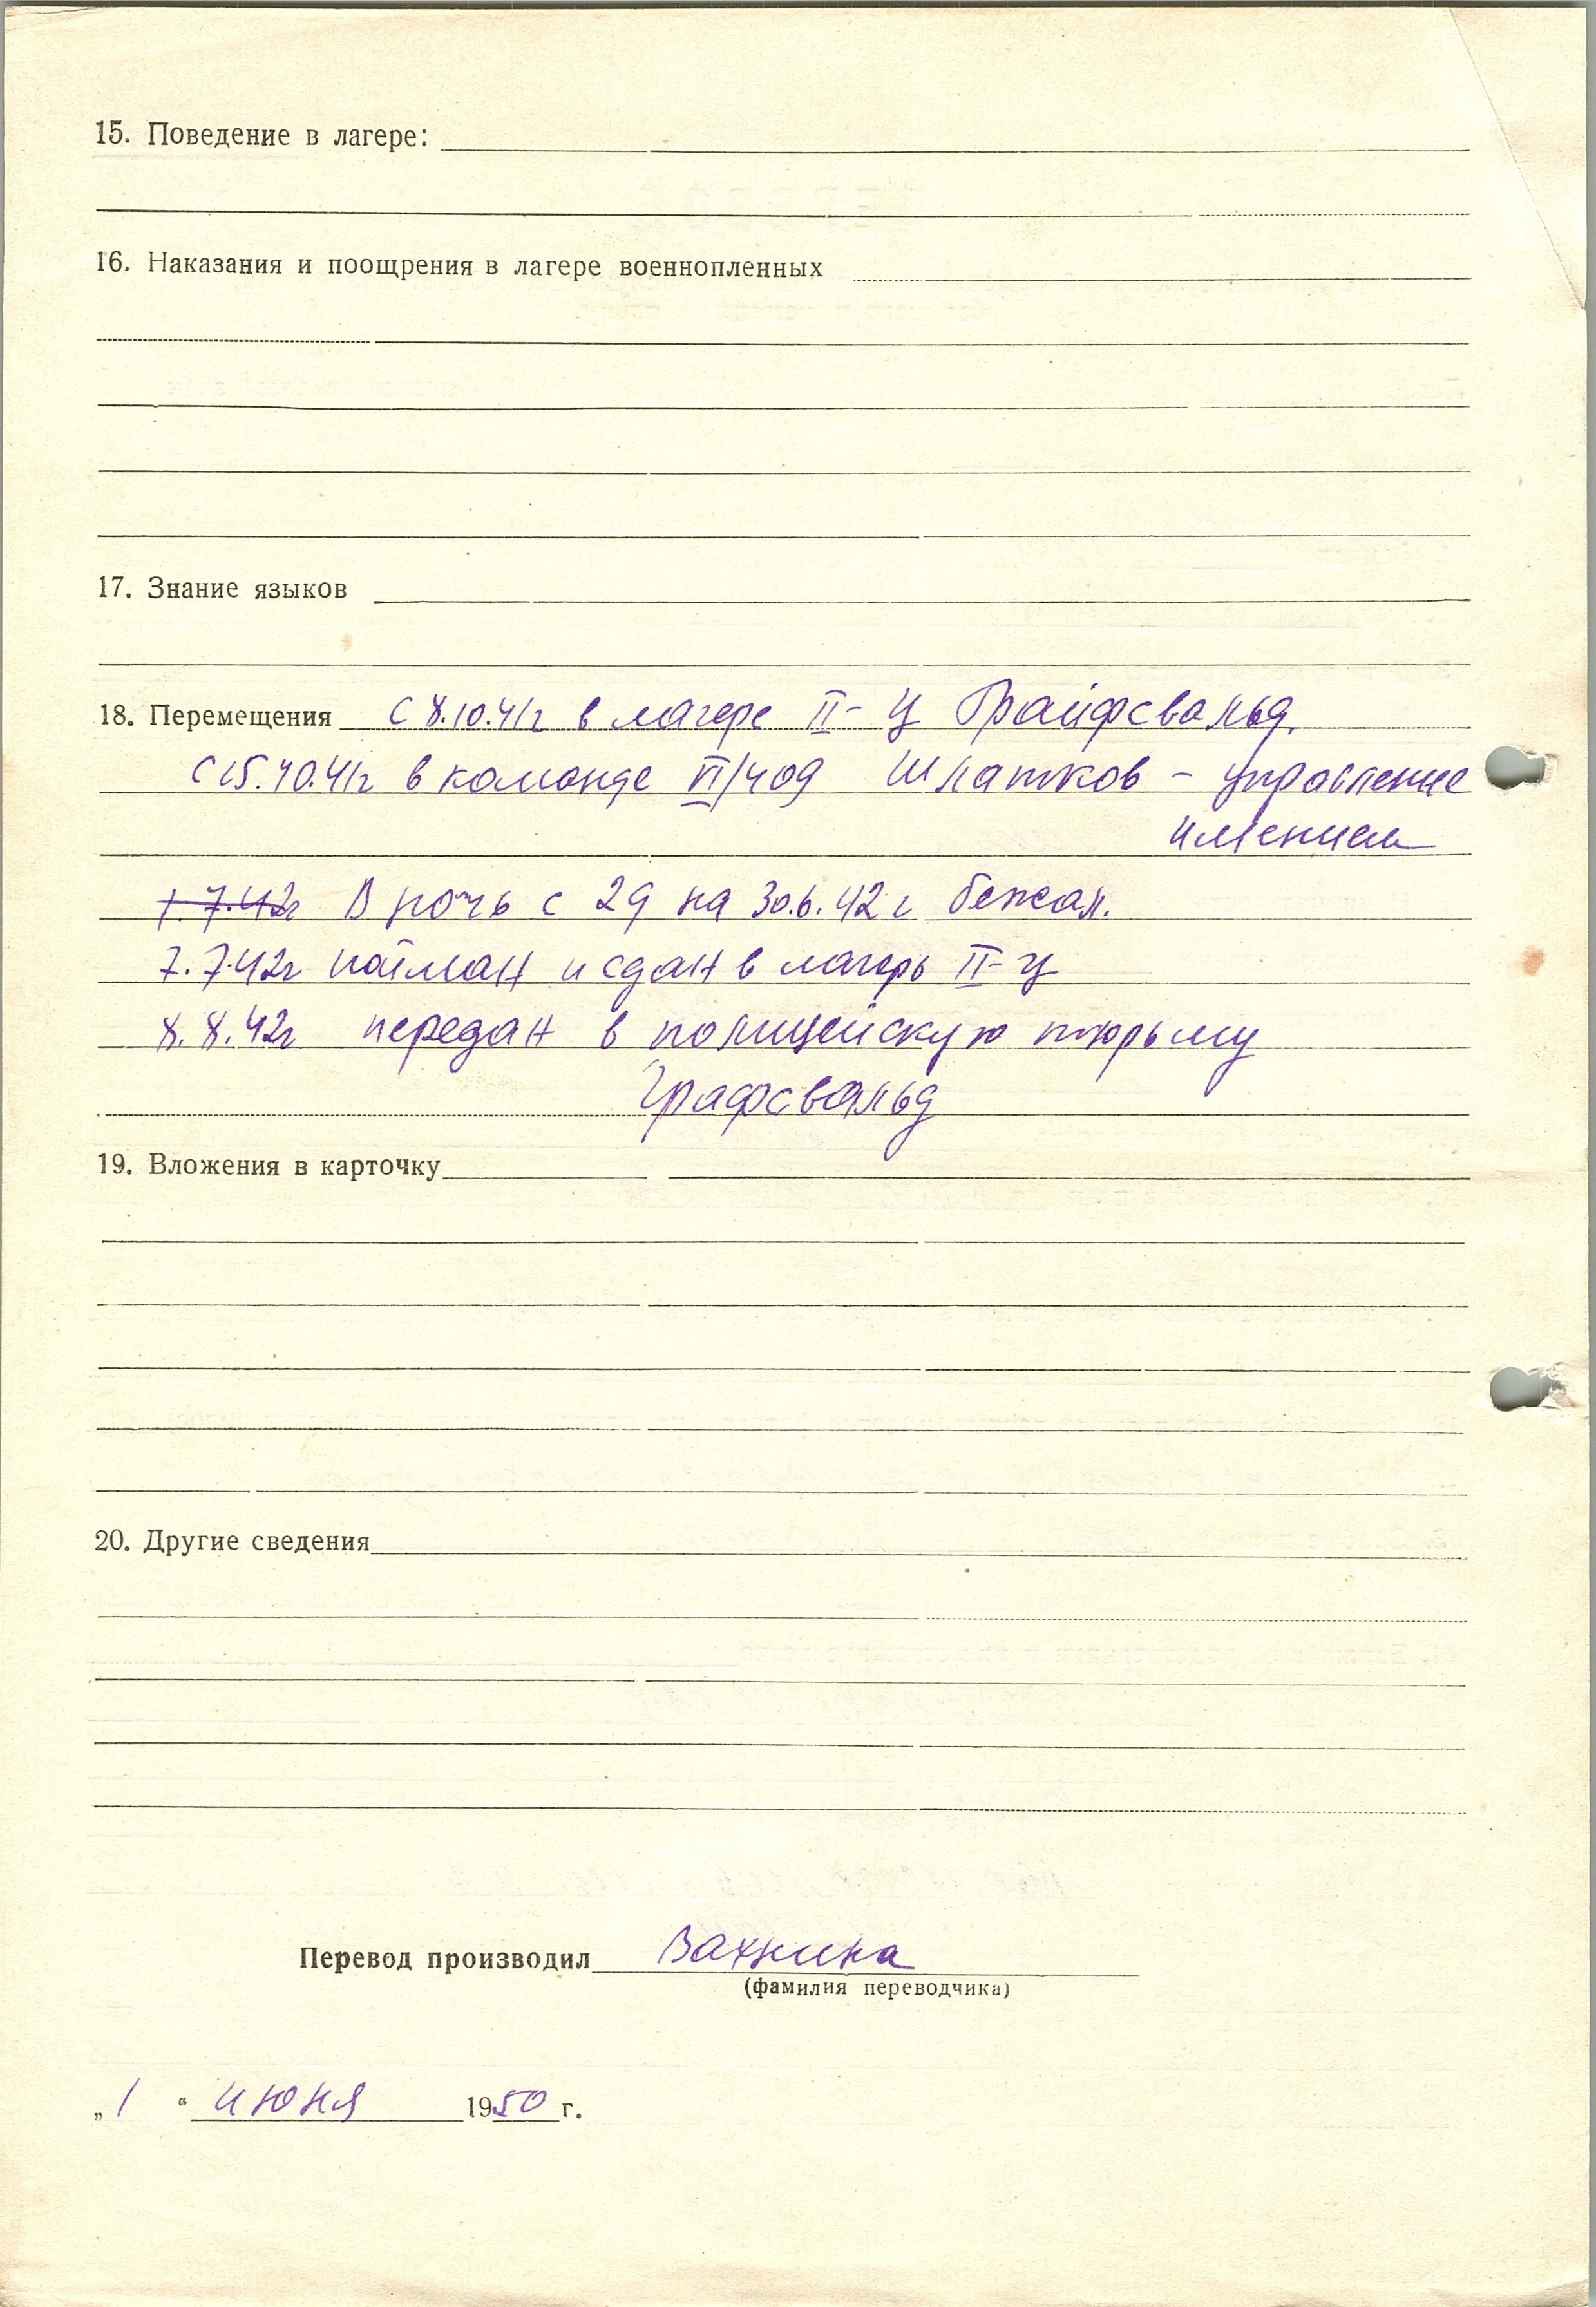 15. Поведение в лагере:
16. Наказания и поощрения в лагере военнопленных
17. Знание языков
18. Перемещения с 8.10.41г в лагере II-Ц Грайфсвальд.
с 15.10.41г в команде VI/409 Шлатков - управление
имением
7.7.42г В ночь с 29 на 30.6.42г бежал.
7.7.42г пойман и сдан в лагерь II-Ц
8.8.42г передан в полицейскую тюрьму
Графсвальд
19. Вложения в карточку
20. Другие сведения
Перевод производил Вахнина
(фамилия переводчика)
„1“ июня 1950 г.